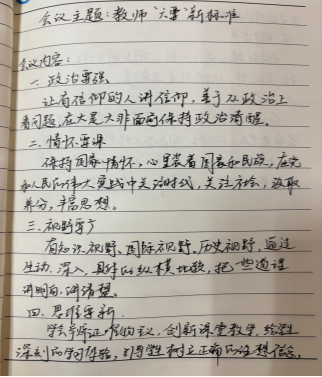 会议主题：教师"六要"新标准
会议内容：
一、政治要强
让有信仰的人讲信仰，善于从政治上
看问题，在大是大非面前保持政治清醒。
二、情怀要深
保持国家情怀，心里装着国家和民族，在党
和人民的伟大实践中关注时代，关注社会，汲取
养分，丰富思想。
三、视野要广
有知识视野、国际视野、历史视野，通过
生动、深入、具体的纵横比较，把一些道理
讲明白、讲清楚。
四、思维要新
学会辩证唯物主义，创新课堂教学，给学生
深刻的学习体验，引导学生树立正确的理想信念，